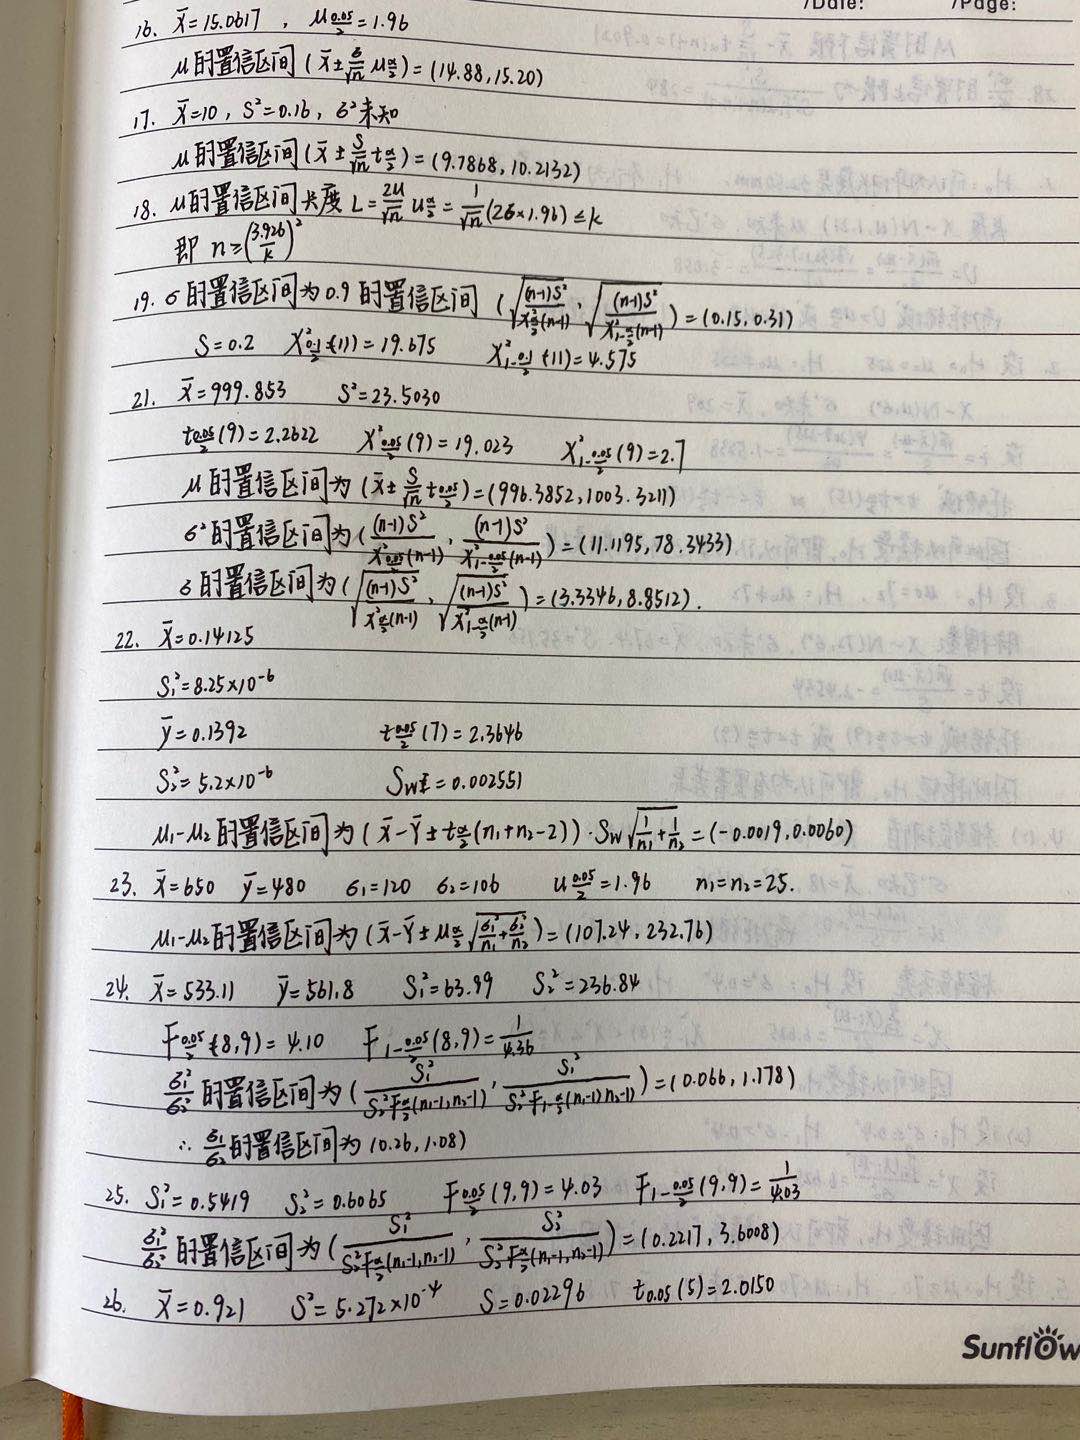 /Date: /Page:
16. x̄=15.0617 , μ0.05/2=1.96
μ的置信区间(x̄±б/√n μα/2)=(14.88,15.20)
17. x̄=10, S²=0.16, б²未知
μ的置信区间(x̄±S/√n tα/2)=(9.7868,10.2132)
18. μ的置信区间长度 L=2μ/√n uα/2=1/√n(2б×1.96)≤k
即 n≥(3.92б/k)²
19. σ的置信区间为0.9的置信区间 (√((n-1)S²/χ²α/2(n-1)), √((n-1)S²/χ²1-α/2(n-1)))=(0.15,0.31)
S=0.2 χ²0.1/2(11)=19.675 χ²1-0.1/2(11)=4.575
21. x̄=999.853 S²=23.5030
t0.05/2(9)=2.2622 χ²0.05/2(9)=19.023 χ²1-0.05/2(9)=2.7
μ的置信区间为(x̄±S/√n t0.05/2)=(996.3852,1003.3211)
б²的置信区间为((n-1)S²/χ²0.05/2(n-1), (n-1)S²/χ²1-0.05/2(n-1))=(11.1195,78.3433)
б的置信区间为(√((n-1)S²/χ²α/2(n-1)), √((n-1)S²/χ²1-α/2(n-1)))=(3.3346,8.8512).
22. x̄=0.14125
S₁²=8.25×10⁻⁶
ȳ=0.1392 t0.05/2(7)=2.3646
S₂²=5.2×10⁻⁶ Sw=0.002551
μ₁-μ₂的置信区间为(x̄-Ȳ±tα/2(n₁+n₂-2))·Sw√(1/n₁+1/n₂)=(-0.0019,0.0060)
23. x̄=650 ȳ=480 б₁=120 б₂=106 u0.05/2=1.96 n₁=n₂=25.
μ₁-μ₂的置信区间为(x̄-Ȳ±μα/2√(б₁²/n₁+б₂²/n₂))=(107.24,232.76)
24. x̄=533.11 ȳ=561.8 S₁²=63.99 S₂²=236.84
F0.05/2(8,9)=4.10 F1-0.05/2(8,9)=1/4.36
б₁²/б₂²的置信区间为(S₁²/S₂²Fα/2(n₁-1,n₂-1), S₁²/S₂²F1-α/2(n₁-1)n₂-1))=(0.066,1.178)
∴ б₁/б₂的置信区间为(0.26,1.08)
25. S₁²=0.5419 S₂²=0.6065 F0.05/2(9,9)=4.03 F1-0.05/2(9,9)=1/4.03
б₁²/б₂²的置信区间为(S₁²/S₂²Fα/2(n₁-1,n₂-1), S₂²/S₂²Fα/2(n₁-1,n₂-1))=(0.2217,3.6008)
26. x̄=0.921 S²=5.272×10⁻⁴ S=0.02296 t0.05(5)=2.0150
Sunflow